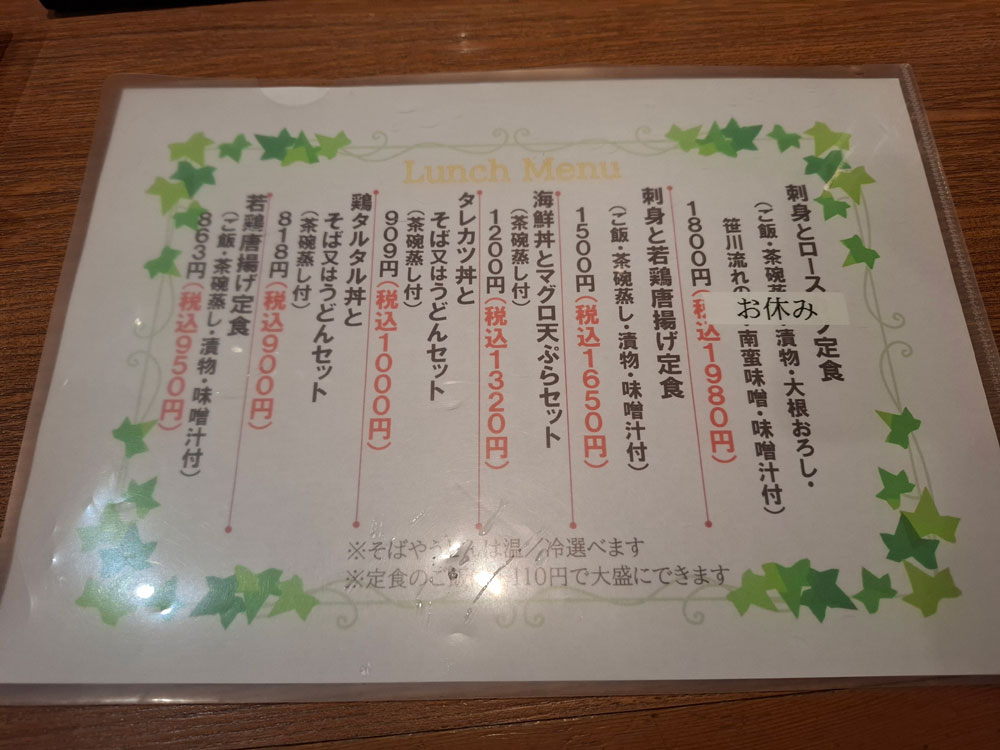 Lunch Menu
刺身とロース
定食
(ご飯・茶碗蒸
漬物・大根おろし・
笹川流れの
南蛮味噌・味噌汁付)
お休み
1800円(税込1980円)
刺身と若鶏唐揚げ定食
(ご飯・茶碗蒸し・漬物・味噌汁付)
1500円(税込1650円)
海鮮丼とマグロ天ぷらセット
(茶碗蒸し付)
1200円(税込1320円)
タレカツ丼と
そば又はうどんセット
(茶碗蒸し付)
909円(税込1000円)
鶏タルタル丼と
そば又はうどんセット
(茶碗蒸し付)
818円(税込900円)
若鶏唐揚げ定食
(ご飯・茶碗蒸し・漬物・味噌汁付)
863円(税込950円)
※そばやうどんは温/冷選べます
※定食のご
110円で大盛にできます